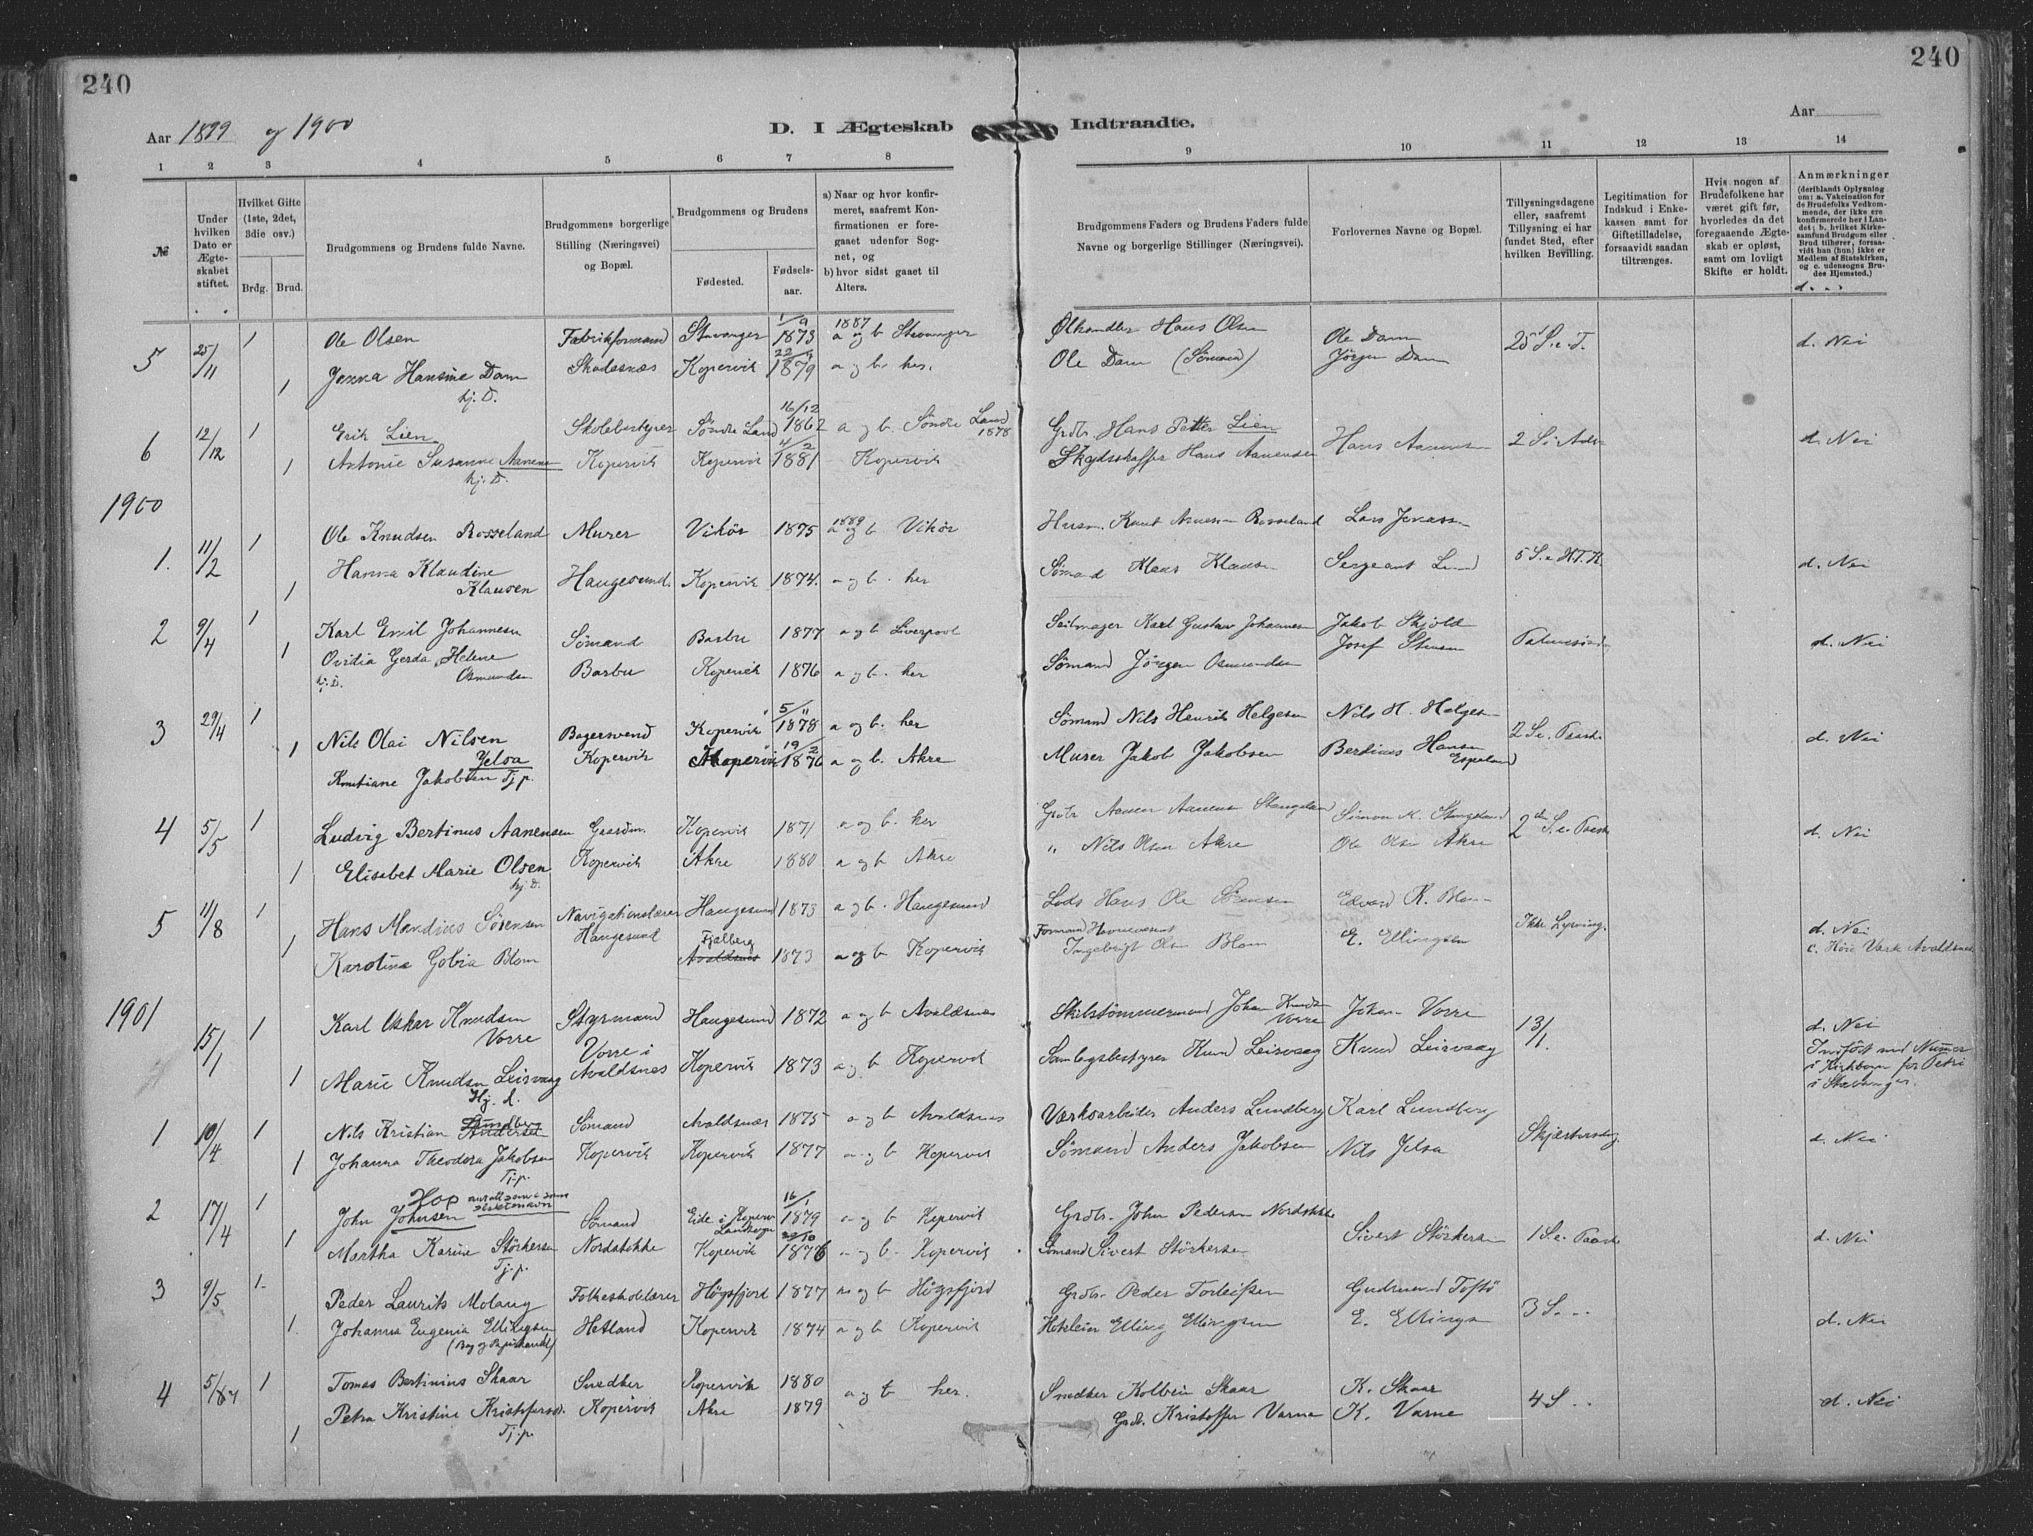 240
240
Aar 1899 og 1900
D. I Ægteskab Indtraadte.
Aar
1 2 3 4 5 6 7 8 9 10 11 12 13 14
№
Under hvilken Dato er Ægteskabet stiftet.
Hvilket Gifte (1ste, 2det, 3die osv.)
Brdg. Brud.
Brudgommens og Brudens fulde Navne.
Brudgommens borgerlige Stilling (Næringsvei) og Bopæl.
Brudgommens og Brudens
Fødested.
Fødselsaar.
a) Naar og hvor konfirmeret, saafremt Konfirmationen er foregaaet udenfor Sognet, og
b) hvor sidst gaaet til Alters.
Brudgommens Faders og Brudens Faders fulde Navne og borgerlige Stillinger (Næringsvei).
Forlovernes Navne og Bopæl.
Tillysningsdagene eller, saafremt Tillysning ei har fundet Sted, efter hvilken Bevilling.
Legitimation for Indskud i Enkekassen samt for Giftetilladelse, forsaavidt saadan tiltrænges.
Hvis nogen af Brudefolkene har været gift før, hvorledes da det foregaaende Ægteskab er opløst, samt om lovligt Skifte er holdt.
Anmærkninger
(deriblandt Oplysning om: a. Vaccination for de Brudefolks Vedkommende, der ikke ere konfirmerede her i Landet; b. hvilket Kirkesamfund Brudgom eller Brud tilhører, forsaavidt han (hun) ikke er Medlem af Statskirken, og c. udensogns Brudes Hjemsted.)
5 25/11 1 Ole Olsen Fabrikformand Stavanger 1/9 1873 1887 a og b Stavanger Ølhandler Hans Olsen Ole Dam 25 S. e. T. d. Nei
1 Jenna Hansine Dam Skudesnæs Kopervik 22/9 1879 a og b. her. Ole Dam (Sømand) Jørgen Dam
hj. D.
6 12/12 1 Erik Lien Skolebestyrer Søndre Land 16/12 1862 a og b. Søndre Land 1878 Grdbr. Hans Petter Lien Hans Aanensen 2 S. i Adv. d. Nei
1 Antonie Susanne Aanensen Kopervik Kopervik 4/2 1881 Kopervik Skydsskaffer Hans Aanensen
hj. D.
1900
1. 11/2 1 Ole Knudsen Rosseland Murer Vikör 1875 1889 a og b. Vikör Husm. Knut Aanesen Rosseland Lars Jonassen 5 S. e. H.T.K. d. Nei
1 Hanna Klaudine Klausen Haugesund. Kopervik 1874. a og b. her Sømand Klaus Klausen Sergeant Lund
2 9/4 1 Karl Emil Johannesen Sømand Barbu 1877 a og b Liverpool Seilmager Karl Gustav Johannesen Jakob Skjold Palmesønd. d. Nei
1 Ovidia Gerda Helene Osmundsen Barbu Kopervik 1876 a og b. her Sømand Jörgen Osmundsen Josef Stensen
hj. D.
3 29/4 1 Nils Olai Nilsen Jelsa Bagersvend Kopervik 5/11 1878 a og b. her Sømand Nils Henrik Helgesen Nils H. Helgesen 2 S. e. Paaske d. Nei
1 Knutiane Jakobsen Tj.p. Kopervik Kopervik 19/2 1876 a og b. Akre Murer Jakob Jakobsen Bertinus Hansen Espeland
4 5/5 1 Ludvig Bertinus Aanensen Gaardm. Kopervik 1871 a og b. her Grdbr Aanen Aanensen Stangeland Simon K. Stangeland 2den S. e. Paaske d. Nei
1 Elisabet Marie Olsen Kopervik Akre 1880 a og b Akre " Nils Olsen Akre Ole Olsen Akre
hj. D.
5 11/8 1 Hans Mandius Sørensen Navigationslærer Haugesund 1873 a og b. Haugesund Lods Hans Ole Sørensen Edvard R. Blom Ikke Lysning. d. Nei
1 Karoline Gobia Blom Haugesund Fjelberg Avaldsnes 1873 a og b Kopervik Formand Havnevæsenet Ingebrigt Olsen Blom E. Ellingsen c. Høie Værk Avaldsnes
1901
15/1 1 Karl Oskar Knudsen Vorre Styrmand Haugesund 1872 a og b Avaldsnes Skibstömmermand Johan Knuds. Vorre Johan Vorre 13/1. d. Nei
1 Marie Knudsen Leisvaag Vorre i Avaldsnes Kopervik 1873 a og b Kopervik Samlagsbestyrer Knud Leisvaag Knud Leisvaag Indført med Numer i Kirkbogen for Petri i Stavanger.
Hj. d.
1 10/4 1 Nils Kristian Lundberg Andersen Sømand Avaldsnæs 1875 a og b Avaldsnes Værksarbeider Anders Lundberg Karl Lundberg Skjærtorsdag. d. Nei
1 Johanna Theodora Jakobsen Kopervik Kopervik 1877 a og b Kopervik Sømand Anders Jakobsen Nils Jelsa
Tj.p.
2 17/4 1 Hop antatt som slektsnavn John Johnsen Sømand Eide i Koperv. Landsogn 16/1 1879 a og b Kopervik Grdbr. John Pedersen Nordstokke Sivert Störkersen 1 S. e. Paaske d. Nei
1 Martha Karine Störkersen Nordstokke Kopervik 22/10 1876 a og b. Kopervik Sømand Sivert Störkersen
Tj.p.
3 9/5 1 Peder Laurits Molaug Folkeskolelærer Högsfjord 1877 a og b Högsfjord Grdbr. Peder Torleifsen Gudmund Toftö 3 S. . . d. Nei
1. Johanna Eugenia Ellingsen (Bog og Papirhandl) Hetland Kopervik 1874 a og b Kopervik Hoteleier Elling Ellingsen E. Ellingsen
4 5/6 1 Tomas Bertinius Skaar Snedker Kopervik 1880 a og b her. Snedker Kolbein Skaar K. Skaar 4 S . . d. Nei
1 Petra Kristine Kristoffersd. Kopervik Akre 1879 Grdbr. Kristoffer Varne K. Varne
Tj.p.